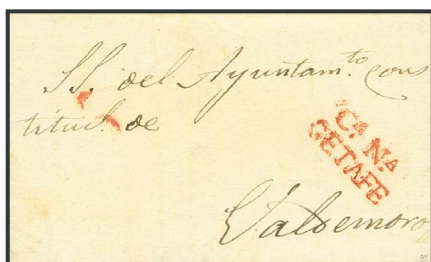 SS. del Ayuntam.to Cons
titucl. de
Cn. Na
GETAFE
Valdemoro